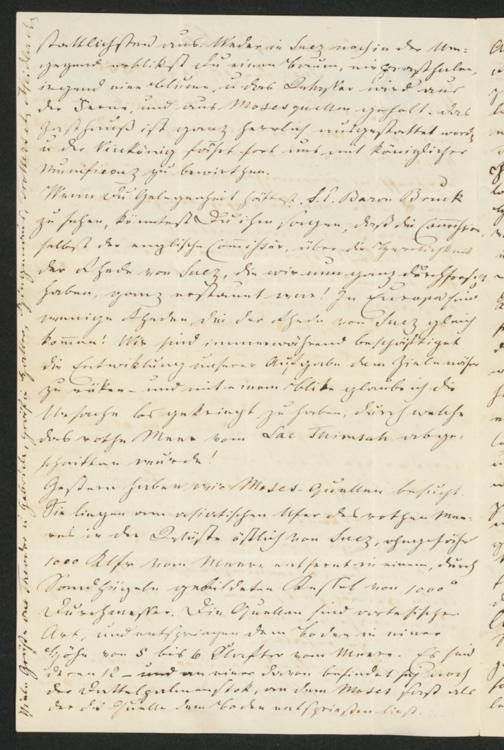 stattlichsten aus. Weder in Suez noch in der Um-
gegend erblickst Du einen Baum, ein Grashalm,
irgend eine Blume, u das Wasser wird aus
der Ferne, und aus Mosesquellen geholt. Das
Gasthauß ist ganz herrlich ausgestattet worden
u der Vicekönig fährt fort uns mit königlicher
Munificenz zu bewirthen.
Wenn Du Gelegenheit hättest, S. E. Baron Bruck
zu sehen, könntest Du ihm sagen, daß die Commission
selbst der englische Commissär, über die
der Rhede von Suez, die wir nun ganz durchforscht
haben, ganz erstaunt war! In Europa sind
wenige Rheden, die der Rhede von Suez gleich
kommen! Wir sind immerwährend beschäftiget
die Entwicklung unserer Aufgabe dem Ziele näher
zu rüken – und mit einem Blike glaube ich die
Ursache los gekriegt zu haben, durch welche
das rothe Meer vom Lac Timsah abge-
schnitten wurde!
Gestern haben wir Moses-Quellen besucht.
Sie liegen am asiatischen Ufer des rothen Mee-
res in der Wüste östlich von Suez, ohngefähr
1000 Klftr vom Meere entfernt in einem, durch
Sandhügeln gebildeten Kessel von 1000°
Durchmesser. Die Quellen sind artesischer
Art, und entspringen dem Boden in einer
Höhe von 5 bis 6 Klafter vom Meere. Es sind
deren 12 – und an einer davon befindet sich noch
der Dattelpalmenstok, an dem Moses
der die Quelle dem Boden entsprießen ließ.
Viele Grüße an Theodor u Gabriele,